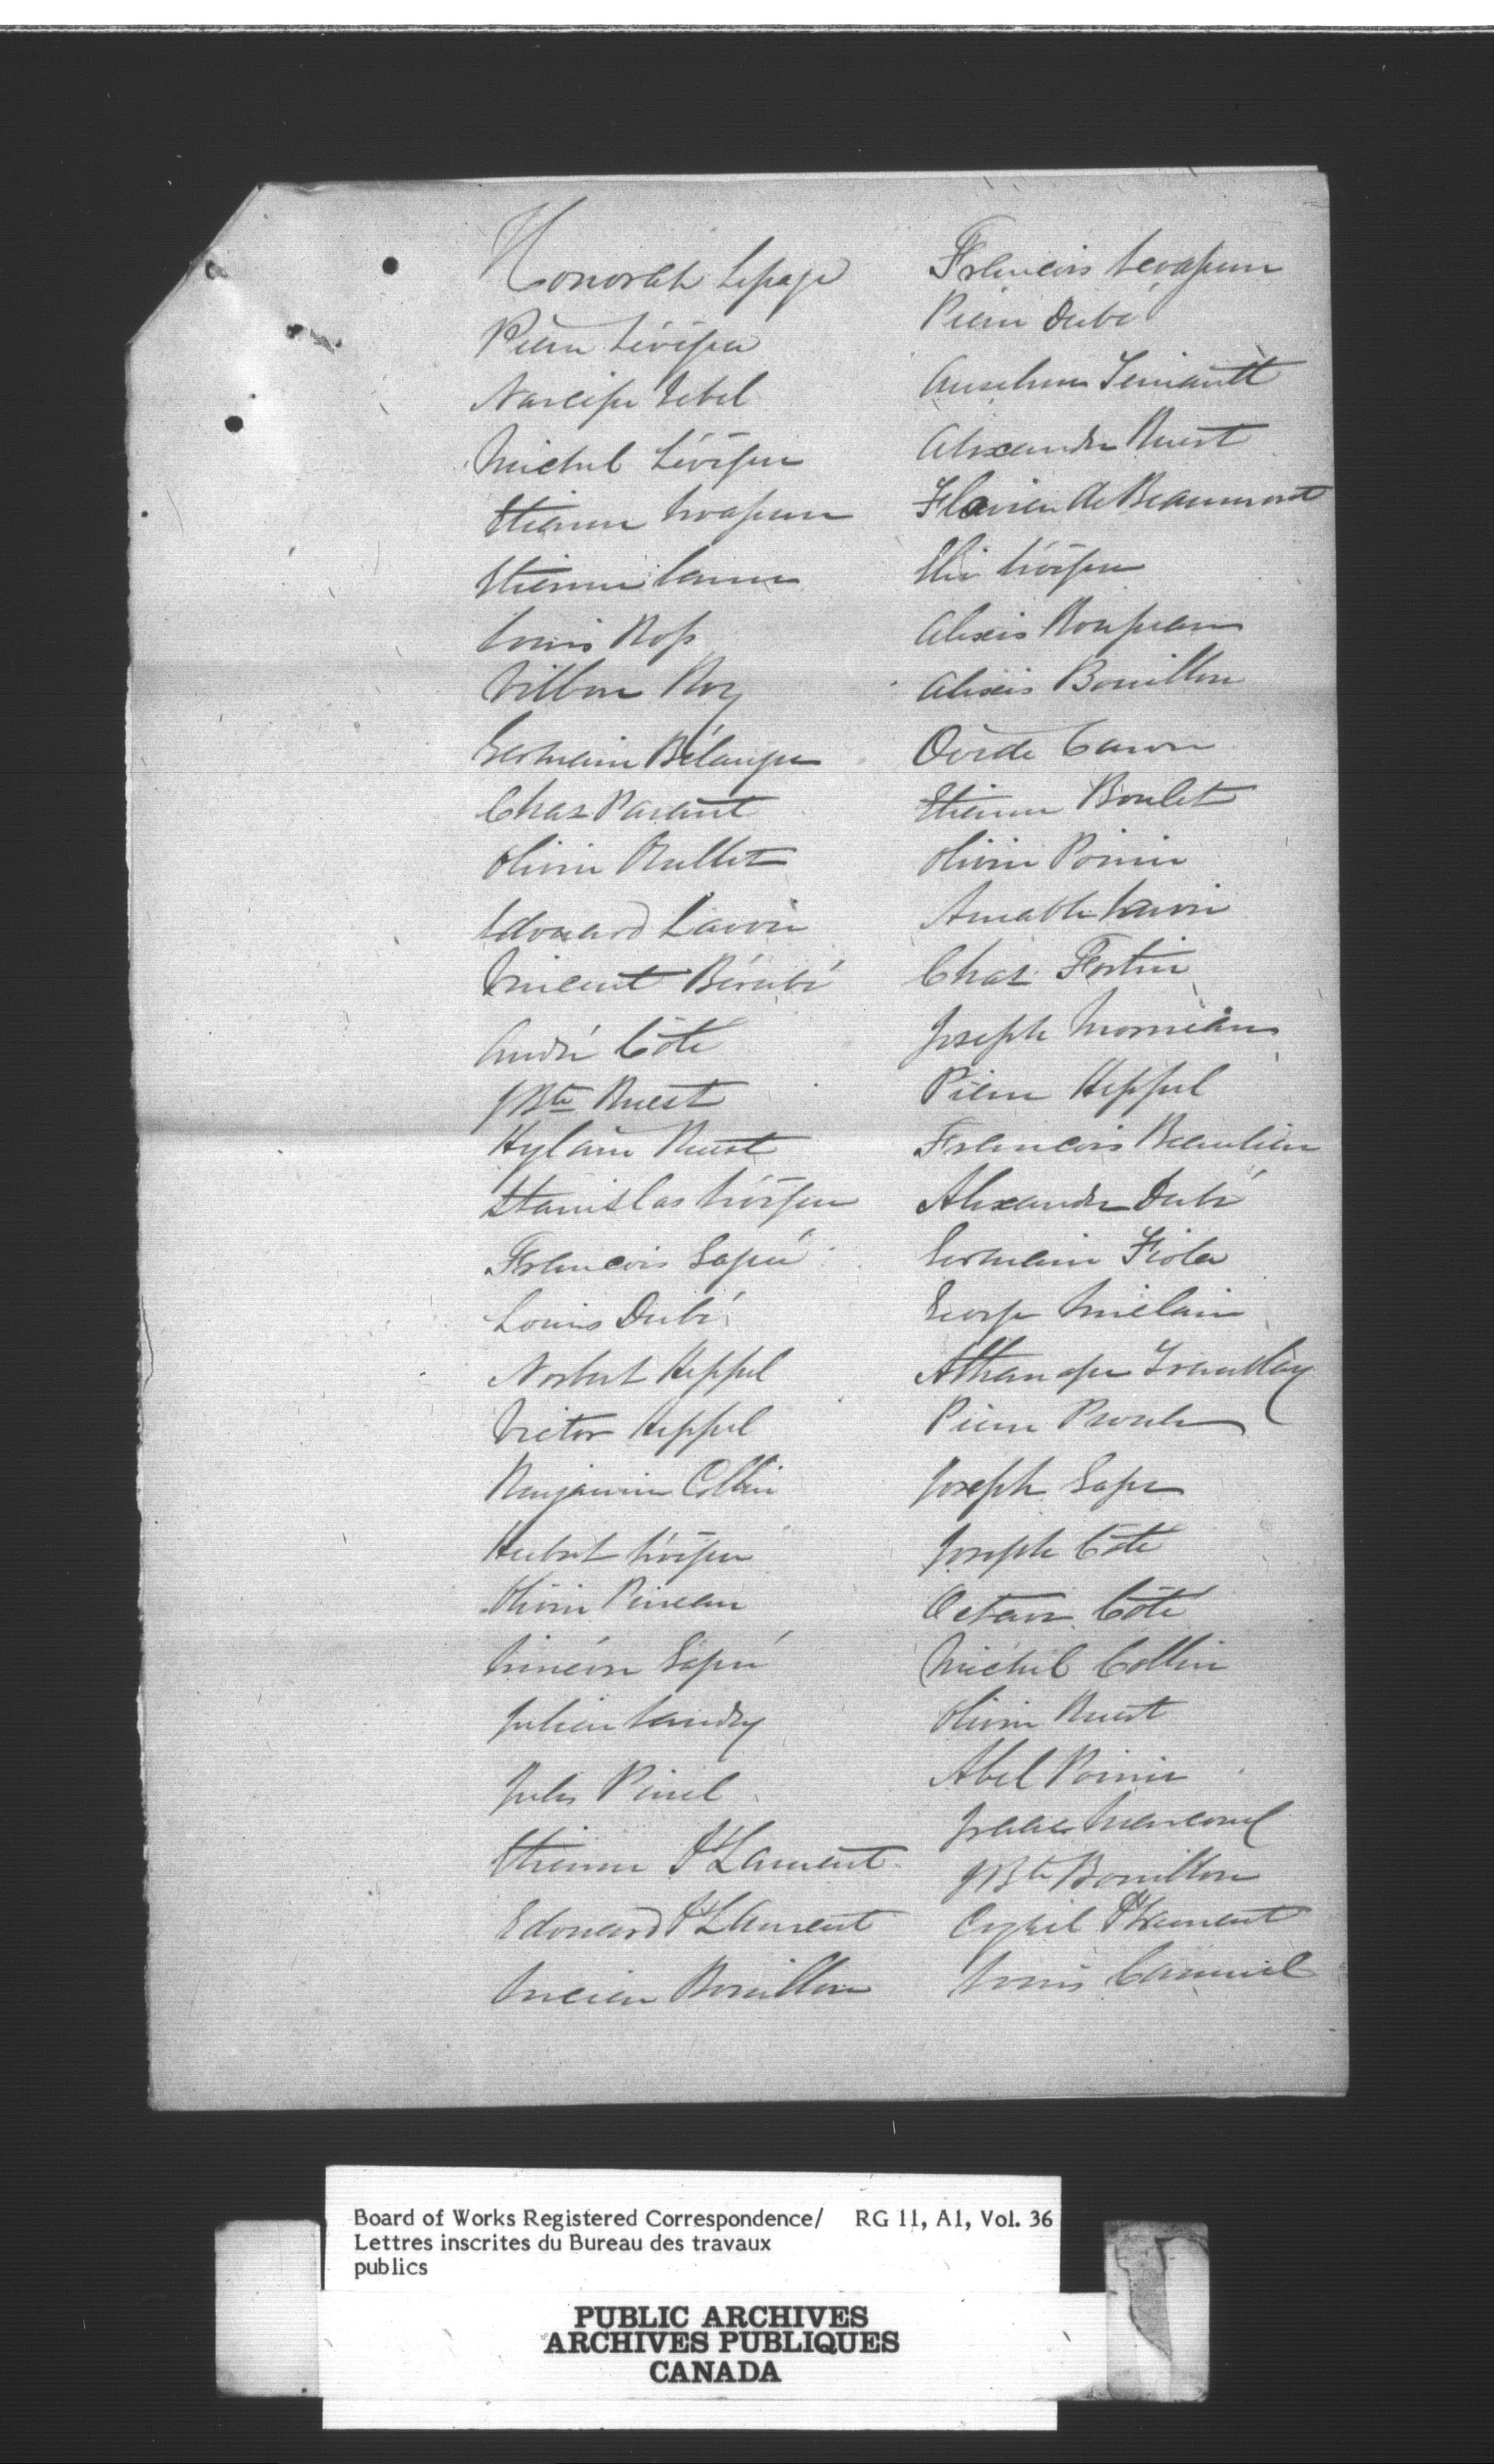 Honorat Lepage
Pierre Lévèque
Narcisse Lebel
Michel Lévèque
Etienne Levasseur
Etienne Canuel
Louis Ross
Wilbon Roy
Germain Bélanger
Chas Parent
Olivier Ruest
Edouard Lavoie
Vincent Bérubé
André Côté
JBte Ruest
Hylaire Ruest
Stanislas Lévèque
Francois Gagné
Louis Dubé
Norbert Heppel
Victor Heppel
Benjamin Collin
Hubert Lévèque
Olivier Pineau
Siméon Gagné
Julien Landry
Jules Pinel
Etienne St Laurent
Edouard St Laurent
Lucien Bouillon
Francois Levasseur
Pierre Dubé
Anselme Terriault
Alexandre Ruest
Flavien de Beaumont
Elie Lévèque
Alexis Rousseau
Alexis Bouillon
Ovide Caron
Etienne Boulet
Olivier Poirier
Amable Lavoie
Chas Fortin
Joseph Morneau
Pierre Heppel
Francois Beaulieu
Alexandre Dubé
Germain Fiola
George
Athanase Tremblay
Pierre Proulx
Joseph
Joseph Côté
Octave Côté
Michel Collin
Olivier Ruest
Abel Poirier
Isaac
JBte Bouillon
Cyril St Laurent
Louis Cannuel
Board of Works Registered Correspondence/ RG 11, A1, Vol. 36
Lettres inscrites du Bureau des travaux
publics
PUBLIC ARCHIVES
ARCHIVES PUBLIQUES
CANADA